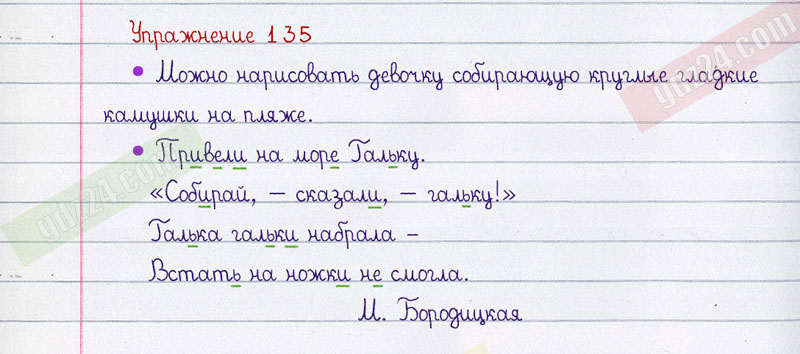 Упражнение 135
• Можно нарисовать девочку собирающую круглые гладкие
камушки на пляже.
• Привели на море Гальку.
«Собирай, – сказали, – гальку!»
Галька гальки набрала –
Встать на ножки не смогла.
М. Бородицкая
gdz24.com
gdz24.com